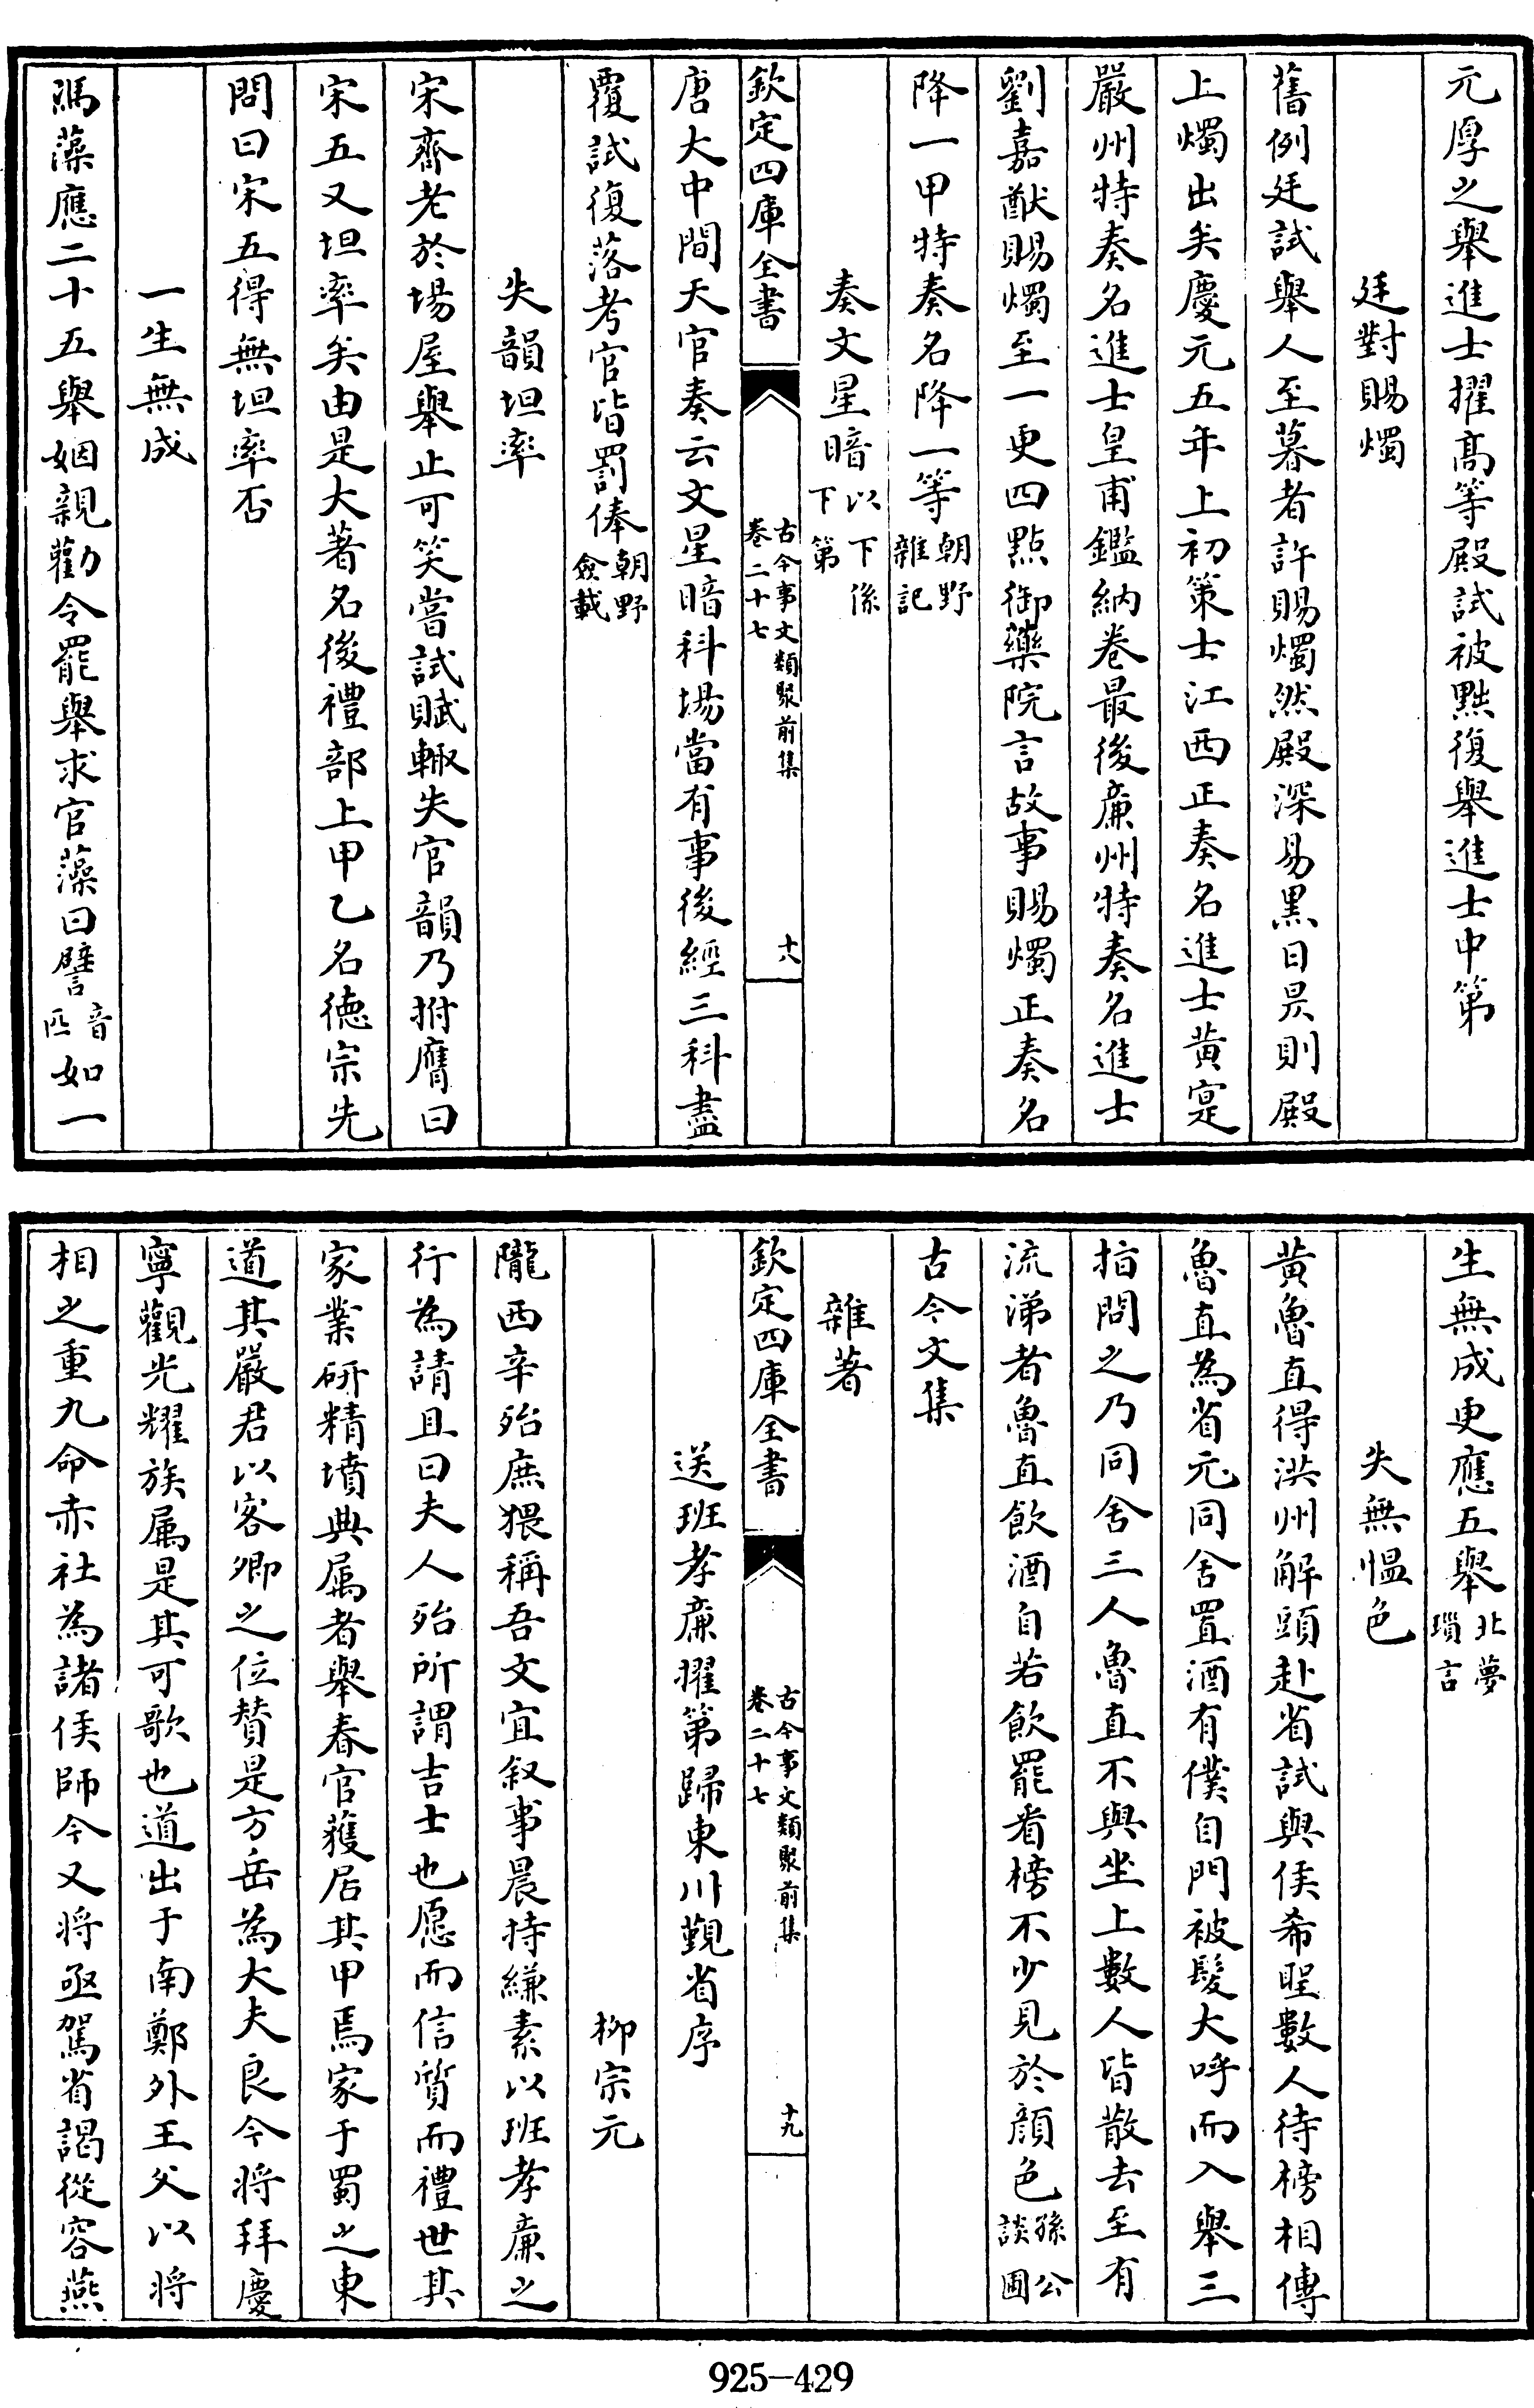 元厚之舉進士擢髙等殿試被㸃復舉進士中第
廷對賜燭
舊例廷試舉人至暮者許賜燭然殿深易黒日昃則殿
上燭出矣慶元五年上初策士江西正奏名進士黄寔
嚴州特奏名進士皇甫鑑納卷最後亷州特奏名進士
劉嘉猷賜燭至一更四㸃御藥院言故事賜燭正奏名
降一甲特奏名降一等朝野雜記
奏文星暗以下係下第
欽定四庫全書
古今事文類聚前集
卷二十七
十八
唐大中間天官奏云文星暗科場當有事後經三科盡
覆試復落考官皆罰俸朝野僉載
失韻坦率
宋齊老於場屋舉止可笑嘗試賦輙失官韻乃拊膺曰
宋五又坦率矣由是大著名後禮部上甲乙名德宗先
問曰宋五得無坦率否
一生無成
馮藻應二十五舉姻親勸令罷舉求官藻曰譬音匹如一
生無成更應五舉北夢瑣言
失無愠色
黃魯直得洪州解頭赴省試與侯希聖數人待榜相傳
魯直為省元同舍置酒有僕自門被髮大呼而入舉三
指問之乃同舍三人魯直不與坐上數人皆散去至有
流涕者魯直飲酒自若飲罷看榜不少見於顔色孫公談圃
古今文集
雜著
欽定四庫全書
古今事文類聚前集
卷二十七
十九
送班孝亷擢第歸東川覲省序
栁宗元
隴西辛殆庶猥稱吾文宜叙事晨持縑素以班孝亷之
行為請且曰夫人殆所謂吉士也愿而信質而禮世其
家業研精墳典属者舉春官獲居其甲焉家于蜀之東
道其嚴君以客卿之位贊是方岳為大夫良今將拜慶
寧觀光耀族属是其可歌也道出于南鄭外王父以將
相之重九命赤社為諸侯師今又將亟駕省謁從容燕
925—429